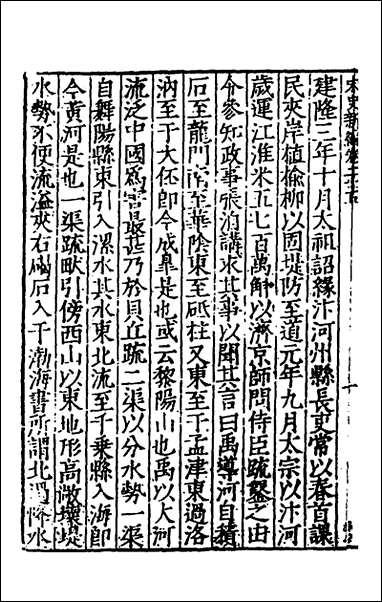 宋史新編卷二十五
建隆三年十月太祖詔緣汴河州縣長吏常以春首課
民夾岸植榆柳以固堤防至道元年九月太宗以汴河
歲運江淮米五七百萬斛以濟京師問侍臣疏鑿之由
令參知政事張洎講求其事以聞其言曰禹導河自積
石至龍門南至華陰東至砥柱又東至于孟津東過洛
汭至于大伾即今成皐是也或云黎陽山也禹以大河
流泛中國爲害最甚乃於貝丘疏二渠以分水勢一渠
自舞陽縣東引入漯水其水東北流至千乘縣入海即
今黃河是也一渠疏畎引傍西山以東地形高敞壞堤
水勢不便流溢夾右碣石入于渤海書所謂北過洚水